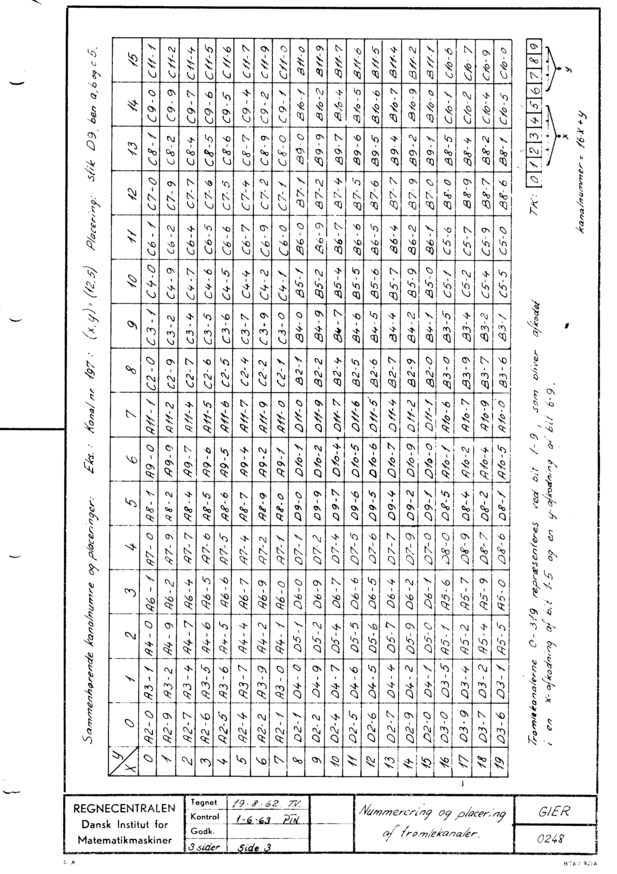 Sammenhørende kanalnumre og placeringer: Eks.: Kanal nr. 197: (x,y) = (12,5) Placering: stik D9, ben a, b og c 5.
X Y 0 1 2 3 4 5 6 7 8 9 10 11 12 13 14 15
0 A2-0 A3-1 A4-0 A6-1 A7-0 A8-1 A9-0 A11-1 C2-0 C3-1 C4-0 C6-1 C7-0 C8-1 C9-0 C11-1
1 A2-9 A3-2 A4-9 A6-2 A7-9 A8-2 A9-9 A11-2 C2-9 C3-2 C4-9 C6-2 C7-9 C8-2 C9-9 C11-2
2 A2-7 A3-4 A4-7 A6-4 A7-7 A8-4 A9-7 A11-4 C2-7 C3-4 C4-7 C6-4 C7-7 C8-4 C9-7 C11-4
3 A2-6 A3-5 A4-6 A6-5 A7-6 A8-5 A9-6 A11-5 C2-6 C3-5 C4-6 C6-5 C7-6 C8-5 C9-6 C11-5
4 A2-5 A3-6 A4-5 A6-6 A7-5 A8-6 A9-5 A11-6 C2-5 C3-6 C4-5 C6-6 C7-5 C8-6 C9-5 C11-6
5 A2-4 A3-7 A4-4 A6-7 A7-4 A8-7 A9-4 A11-7 C2-4 C3-7 C4-4 C6-7 C7-4 C8-7 C9-4 C11-7
6 A2-2 A3-9 A4-2 A6-9 A7-2 A8-9 A9-2 A11-9 C2-2 C3-9 C4-2 C6-9 C7-2 C8-9 C9-2 C11-9
7 A2-1 A3-0 A4-1 A6-0 A7-1 A8-0 A9-1 A11-0 C2-1 C3-0 C4-1 C6-0 C7-1 C8-0 C9-1 C11-0
8 D2-1 D4-0 D5-1 D6-0 D7-1 D9-0 D10-1 D11-0 B2-1 B4-0 B5-1 B6-0 B7-1 B9-0 B10-1 B11-0
9 D2-2 D4-9 D5-2 D6-9 D7-2 D9-9 D10-2 D11-9 B2-2 B4-9 B5-2 B6-9 B7-2 B9-9 B10-2 B11-9
10 D2-4 D4-7 D5-4 D6-7 D7-4 D9-7 D10-4 D11-7 B2-4 B4-7 B5-4 B6-7 B7-4 B9-7 B10-4 B11-7
11 D2-5 D4-6 D5-5 D6-6 D7-5 D9-6 D10-5 D11-6 B2-5 B4-6 B5-5 B6-6 B7-5 B9-6 B10-5 B11-6
12 D2-6 D4-5 D5-6 D6-5 D7-6 D9-5 D10-6 D11-5 B2-6 B4-5 B5-6 B6-5 B7-6 B9-5 B10-6 B11-5
13 D2-7 D4-4 D5-7 D6-4 D7-7 D9-4 D10-7 D11-4 B2-7 B4-4 B5-7 B6-4 B7-7 B9-4 B10-7 B11-4
14 D2-9 D4-2 D5-9 D6-2 D7-9 D9-2 D10-9 D11-2 B2-9 B4-2 B5-9 B6-2 B7-9 B9-2 B10-9 B11-2
15 D2-0 D4-1 D5-0 D6-1 D7-0 D9-1 D10-0 D11-1 B2-0 B4-1 B5-0 B6-1 B7-0 B9-1 B10-0 B11-1
16 D3-0 D3-5 A5-1 A5-6 D8-0 D8-5 A10-1 A10-6 B3-0 B3-5 C5-1 C5-6 B8-0 B8-5 C10-1 C10-6
17 D3-9 D3-4 A5-2 A5-7 D8-9 D8-4 A10-2 A10-7 B3-9 B3-4 C5-2 C5-7 B8-9 B8-4 C10-2 C10-7
18 D3-7 D3-2 A5-4 A5-9 D8-7 D8-2 A10-4 A10-9 B3-7 B3-2 C5-4 C5-9 B8-7 B8-2 C10-4 C10-9
19 D3-6 D3-1 A5-5 A5-0 D8-6 D8-1 A10-5 A10-0 B3-6 B3-1 C5-5 C5-0 B8-6 B8-1 C10-5 C10-0
Tromlekanalerne 0-319 repræsenteres ved bit 1-9, som bliver afkodet
i en x-afkodning af bit 1-5 og en y-afkodning af bit 6-9.
TK: 0 1 2 3 4 5 6 7 8 9
x y
kanalnummer = 16x+y
REGNECENTRALEN
Dansk Institut for
Matematikmaskiner
Tegnet 19-8-62 T.V.
Kontrol 1-6-63 PIN
Godk.
3 sider Side 3
Nummerering og placering
af tromlekanaler.
GIER
0248